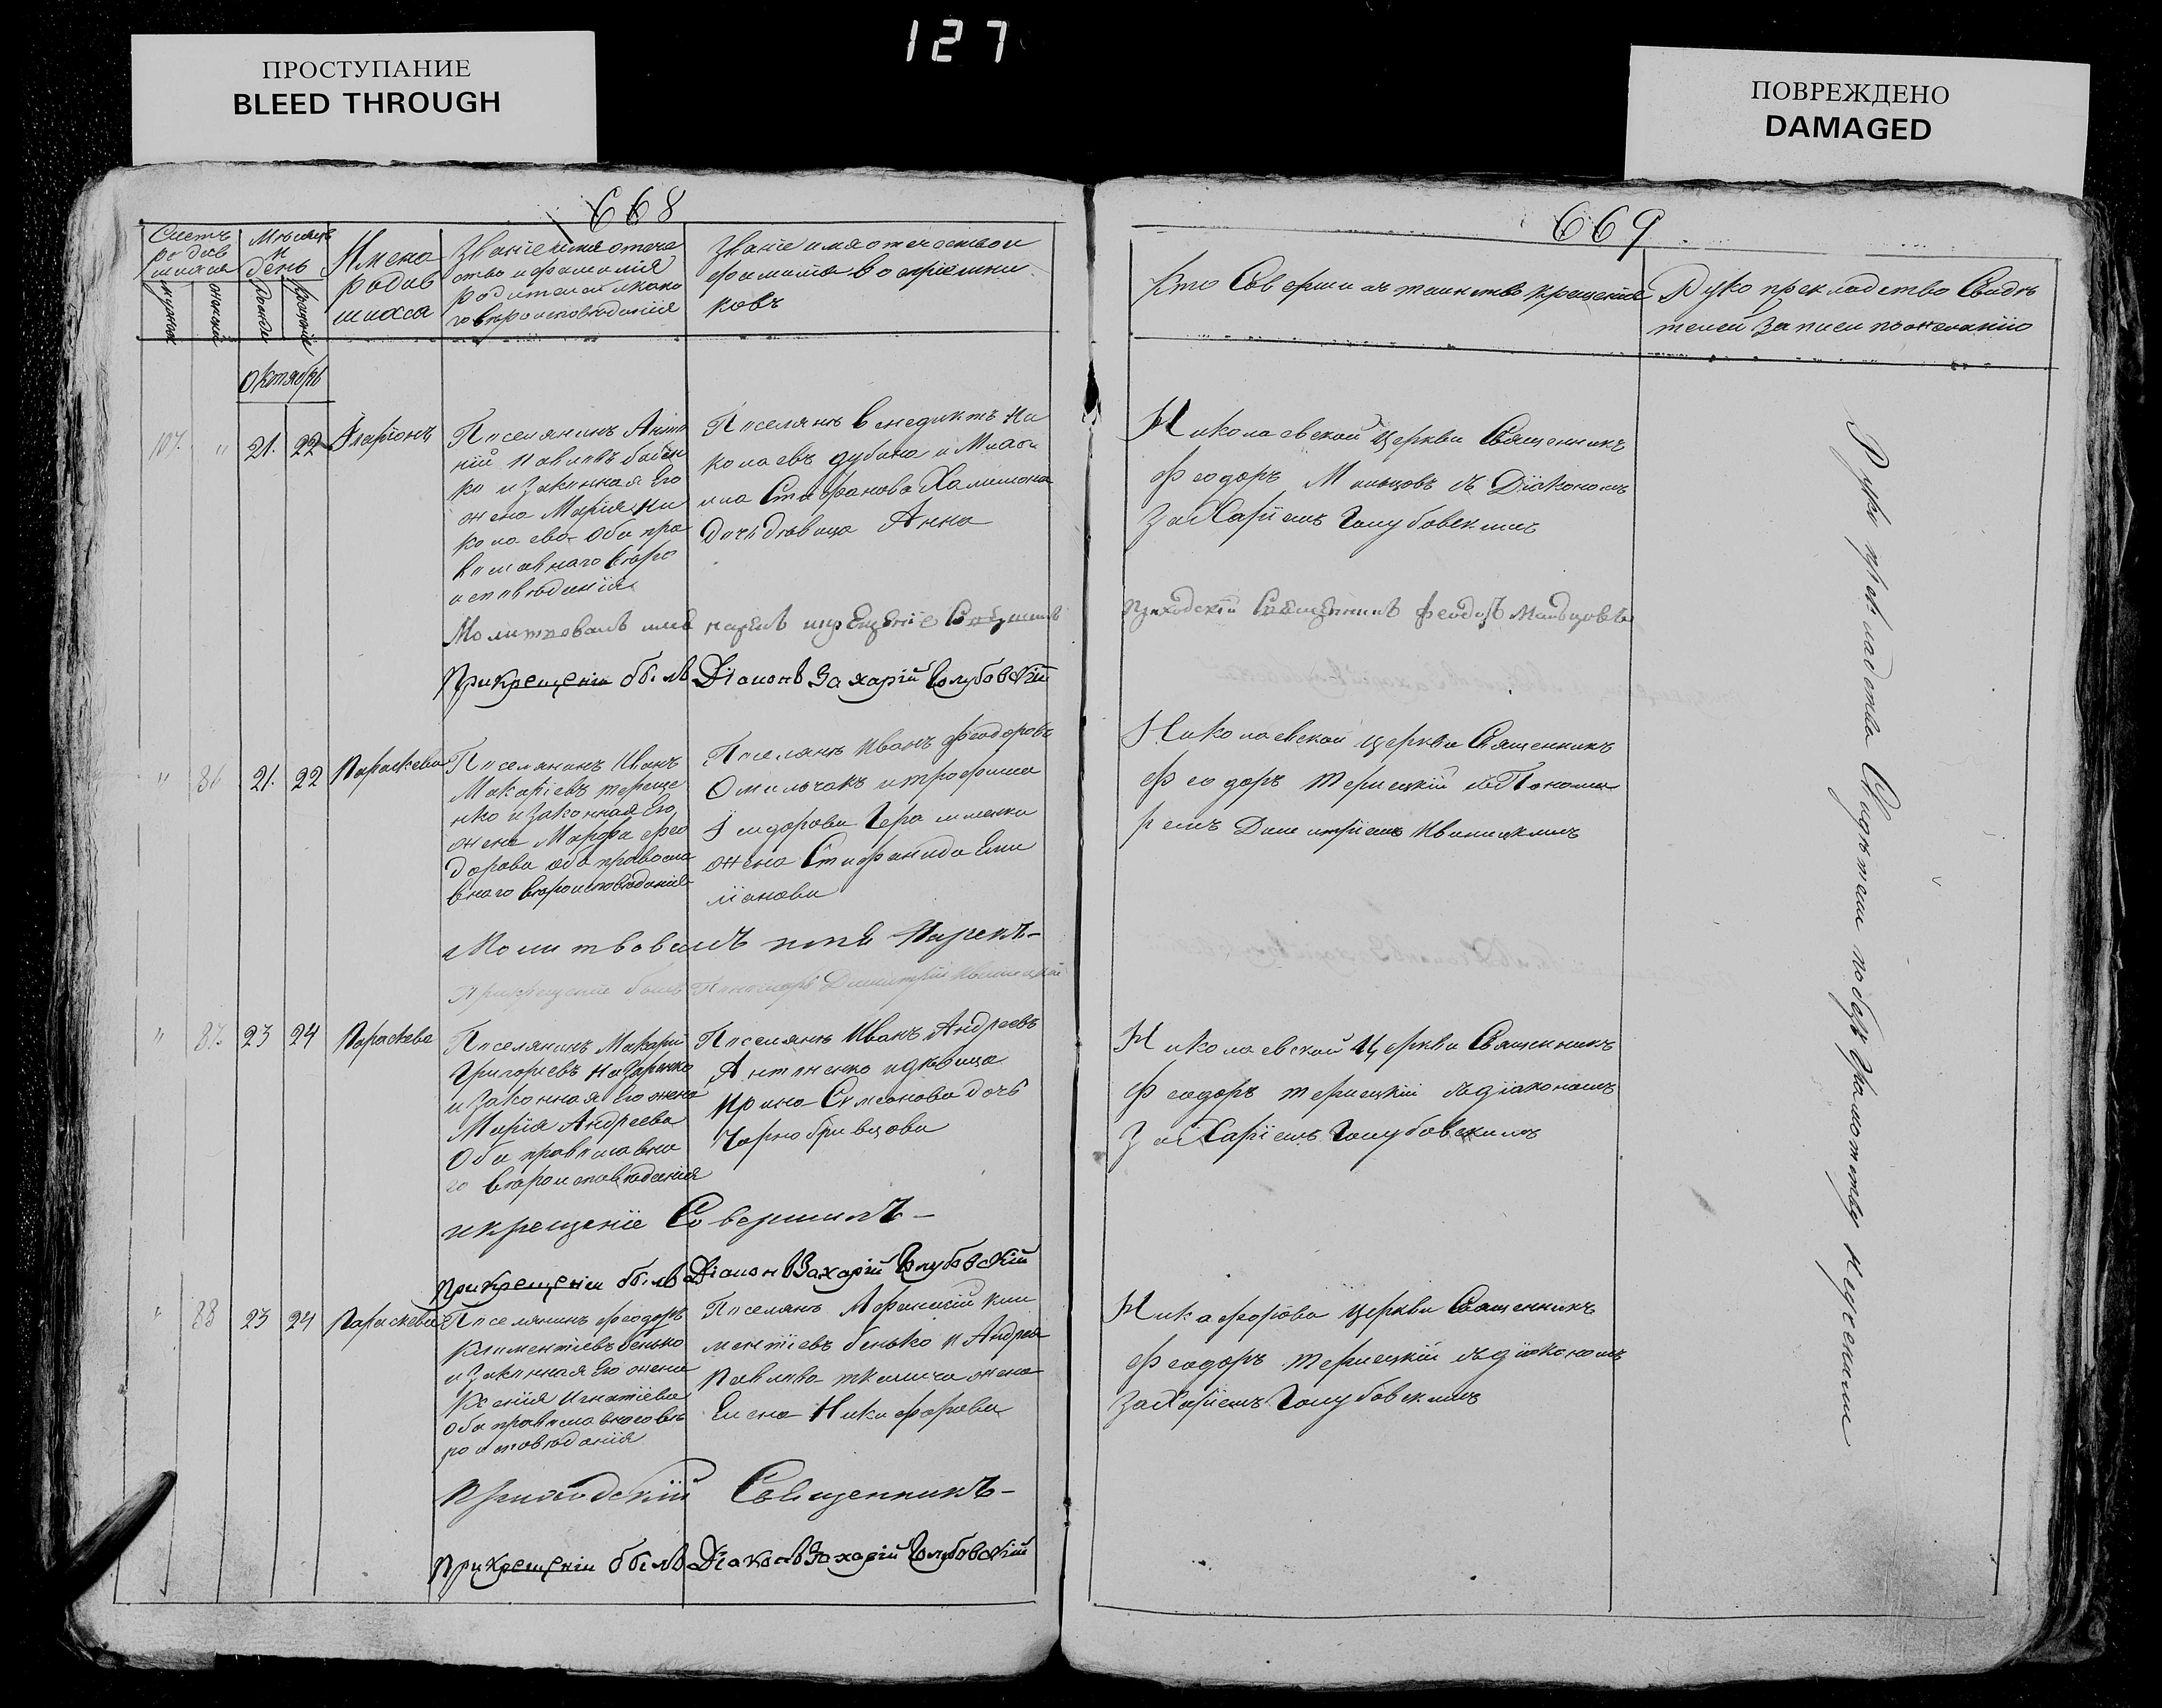 127
ПРОСТУПАНИЕ
BLEED THROUGH
ПОВРЕЖДЕНО
DAMAGED
668
Счетъ родив шихся
Мѣсяцъ и день
мужеск
женской
рожден
крещенія
Имена
родив
шихся
Званіе имя отече
ство и фамилія
родителей и како
го вѣроисповѣданія
Званіе имя отечество и
фамилія воспріемни
ковъ
Октябрь
107. " 21. 22 Іларіонъ
Поселянинъ Анто
ній Павловъ Бабен
ко и законная Его
жена Марія Ни
колаева Оба пра
вославнаго вѣро
исповѣданія
Поселянъ Венедиктъ Ни
колаевъ Дубина и
Стефанова Халимона
дочь дѣвица Анна
Молитвовалъ имя нарекъ и крещеніе Совершилъ
При крещеніи былъ Діаконъ Захарій Голубовскій
" 86 21. 22 Параскева
Поселянинъ Иванъ
Макаріевъ Тереще
нко и законная Его
жена Марфа Фео
дорова оба правосла
внаго вѣроисповѣданія
Поселянъ Иванъ Феодоровъ
Омельчакъ и Трофима
Ісидорова Герасименки
жена Стефанида Еми
ліянова
Молитвовалъ имя Нарекъ
При крещеніи былъ Пономарь Димитрій Ивашицкій
" 87. 23 24 Параскева
Поселянинъ Макарій
Григоріевъ Назаренко
и законная Его жена
Марія Андреева
Оба православна
го вѣроисповѣданія
Поселянъ Иванъ Андреевъ
Антоненко и дѣвица
Ирина Симеонова дочь
Чорнобривцова
и крещеніе Совершилъ
При крещеніи былъ Діаконъ Захарій Голубовскій
" 88 23 24 Параскева
Поселянинъ Феодоръ
Климентіевъ Бенько
и законная Его жена
Ксенія Игнатіева
Оба православнаго вѣ
роисповѣданія
Поселянъ Афанасій Кли
ментіевъ Бенько и Андрея
Павлова Ткалича жена
Елена Никифорова
Приходскій Священникъ
При крещеніи былъ Діаконъ Захарій Голубовскій
669
Кто Совершилъ таинство крещенія
Рукоприкладство Свидѣ
телей записи по желанію
Николаевской Церкви Священникъ
Феодоръ Мальцовъ съ Діакономъ
Захаріемъ Голубовскимъ
Приходскій Священникъ Феодоръ Мальцовъ
Николаевской Церкви Священникъ
Феодоръ Терлецкій съ Понома
ремъ Димитріемъ Ивашицкимъ
Николаевской Церкви Священникъ
Феодоръ Терлецкій съ діакономъ
Захаріемъ Голубовскимъ
Церкви Священникъ
Феодоръ Терлецкій съ діакономъ
Захаріемъ Голубовскимъ
Рукоприкладства Свидѣтели по безграмотству не учинили